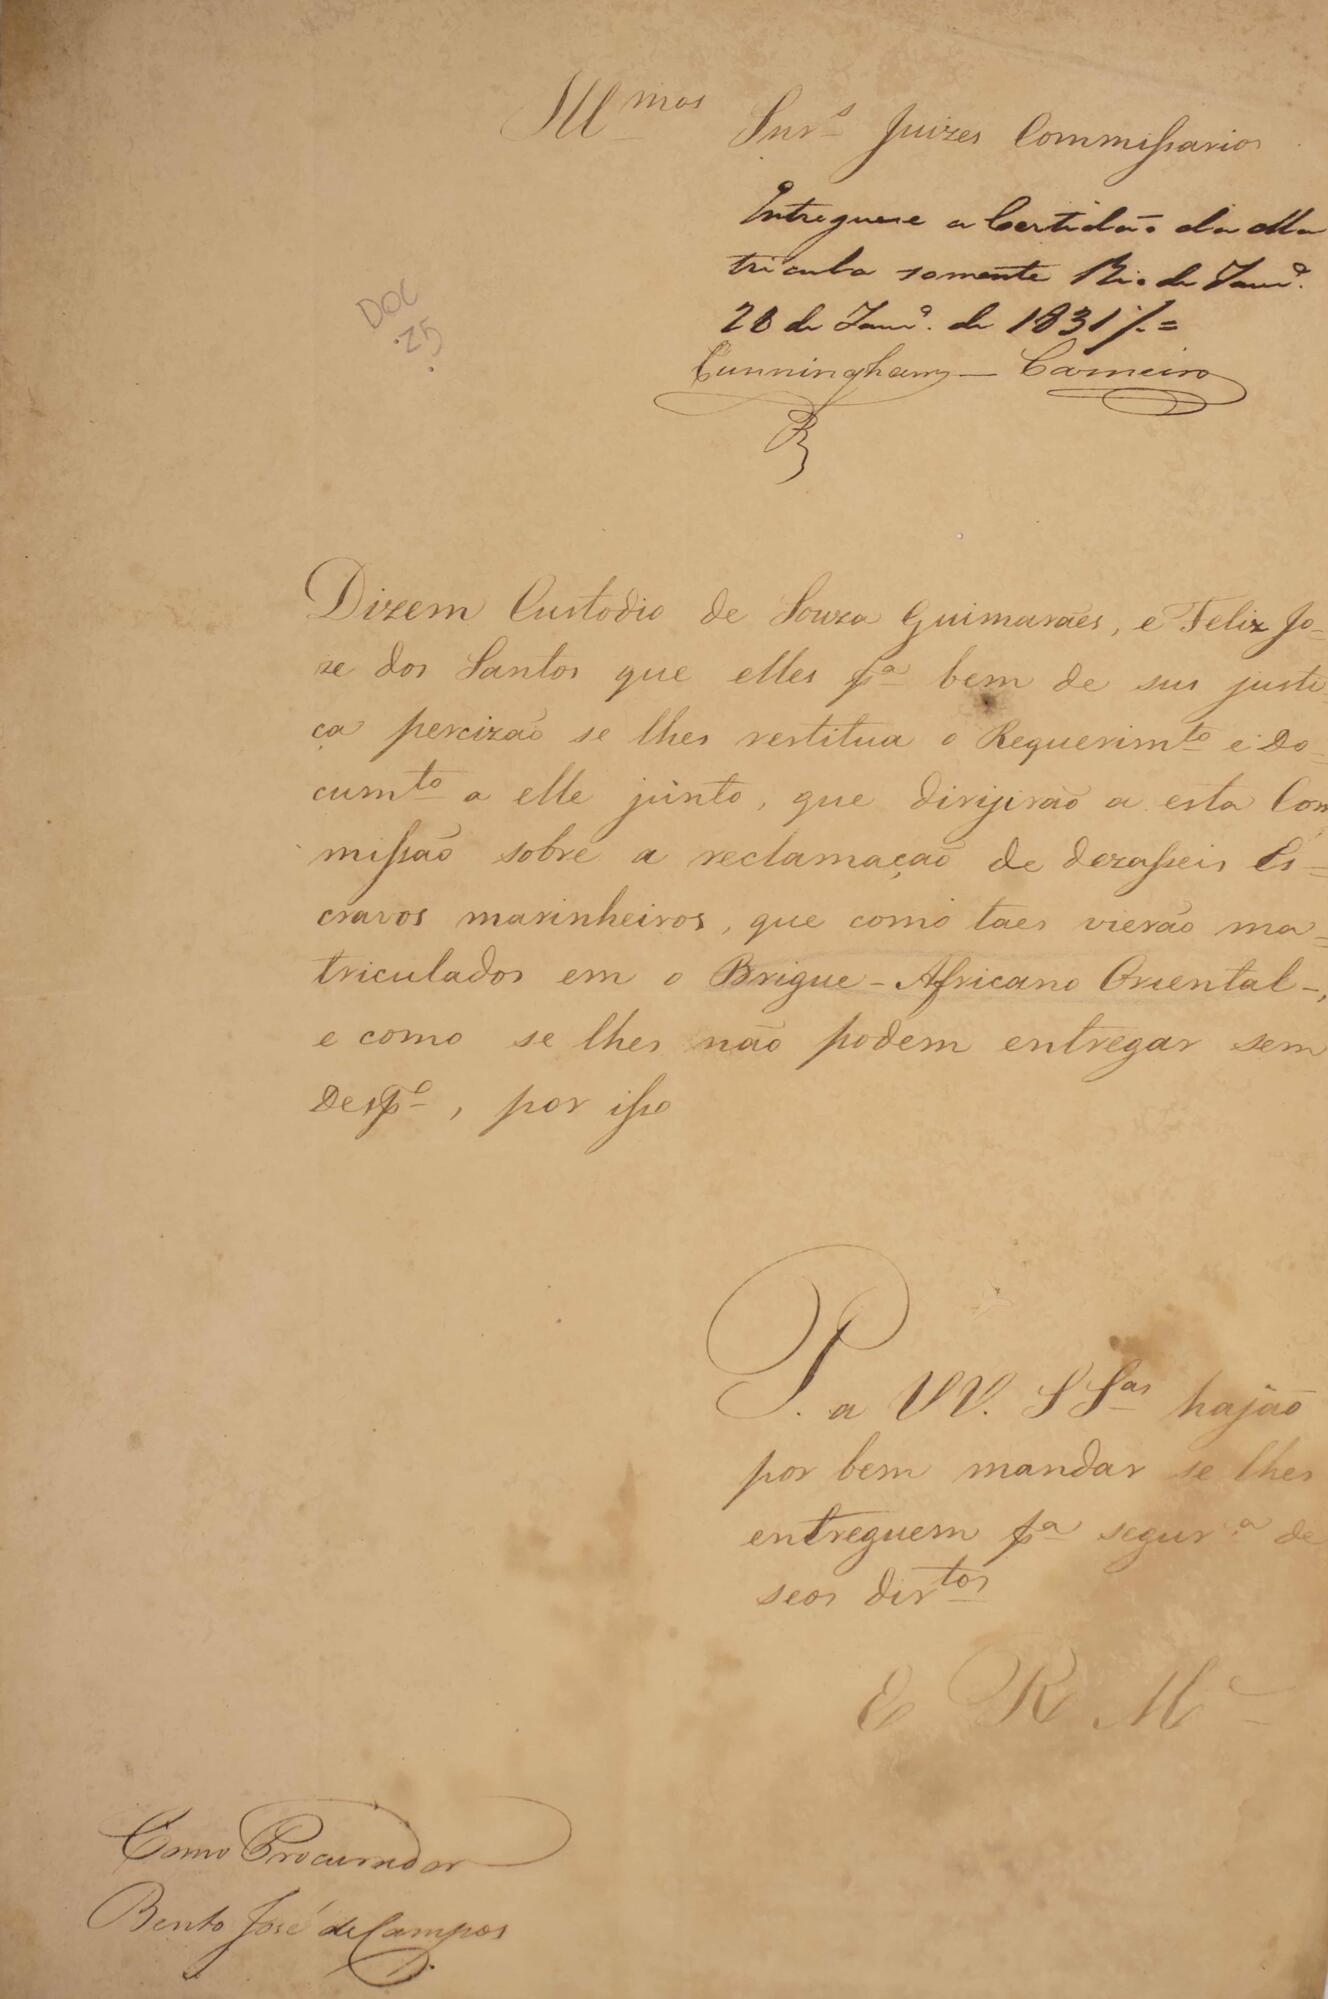 Ill.mos Snr.s Juizes Commissarios
Entreguese a Certidão da Ma
tricula somente Rio de Janr.o
28 de Janr.o de 1831 /. =
Cunningham — Carneiro
DOC
25
Dizem Custodio de Souza Guimarães, e Feliz Jo-
ze dos Santos que elles p.a bem de sus justi-
ça percizão se lhes restitua o Requerim.to e Do-
cum.to a elle junto, que dirijirão a esta Com
missão sobre a reclamação de dezasseis Es-
cravos marinheiros, que como taes vierão ma-
triculados em o Brigue - Africano Oriental -,
e como se lhes não podem entregar sem
Desp.o, por isso
P. a VV. SS.as hajão
por bem mandar se lhes
entreguem p.a segur.a de
seos dir.tos
E R M.
Como Procurador
Bento José de Campos